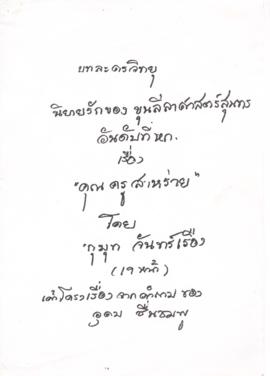 บทละครวิทยุ
นิยายรักของ ขุนลีลาศาสตร์สุนทร
อันดับที่หก.
เรื่อง
"คุณครูสาหร่าย"
โดย
"กุมุท จันทร์เรือง
(๑๑ หน้า)
เค้าโครงเรื่อง จาก ของ
อุดม ชื่นชมพู